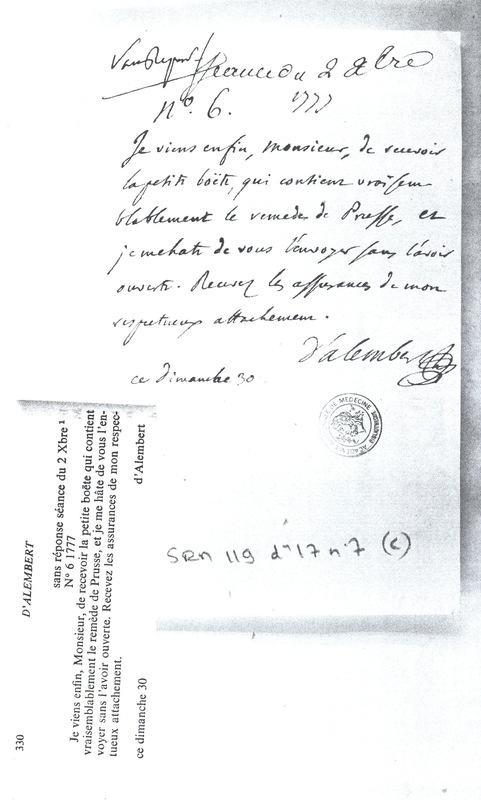 Sans Reponse Séance du 2 Xbre
N°. 6. 1777
Je viens enfin, Monsieur, de recevoir
la petite boëte, qui contient vraisem
blablement le remede de Prusse, et
je me hate de vous l'envoyer sans l'avoir
ouverte. Recevez les assurances de mon
respectueux attachement.
D'alembert
ce Dimanche 30
DE MEDECINE
ACADEMIE
SRM 119 d^r 17 n° 7 (c)
330
D'ALEMBERT
sans réponse séance du 2 Xbre ¹
N° 6 1777
Je viens enfin, Monsieur, de recevoir la petite boëte qui contient
vraisemblablement le remède de Prusse, et je me hâte de vous l'en-
voyer sans l'avoir ouverte. Recevez les assurances de mon respec-
tueux attachement.
d'Alembert
ce dimanche 30